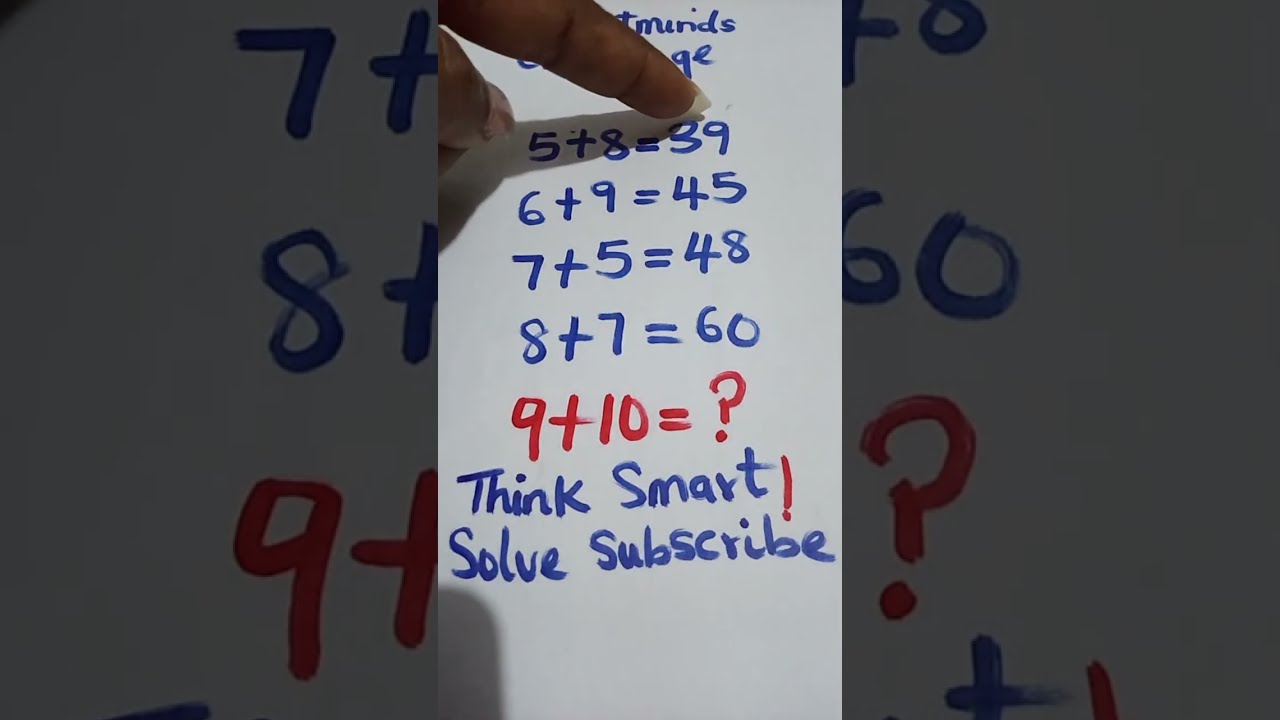 5+8=39
6+9=45
7+5=48
8+7=60
9+10=?
Think Smart!
Solve Subscribe